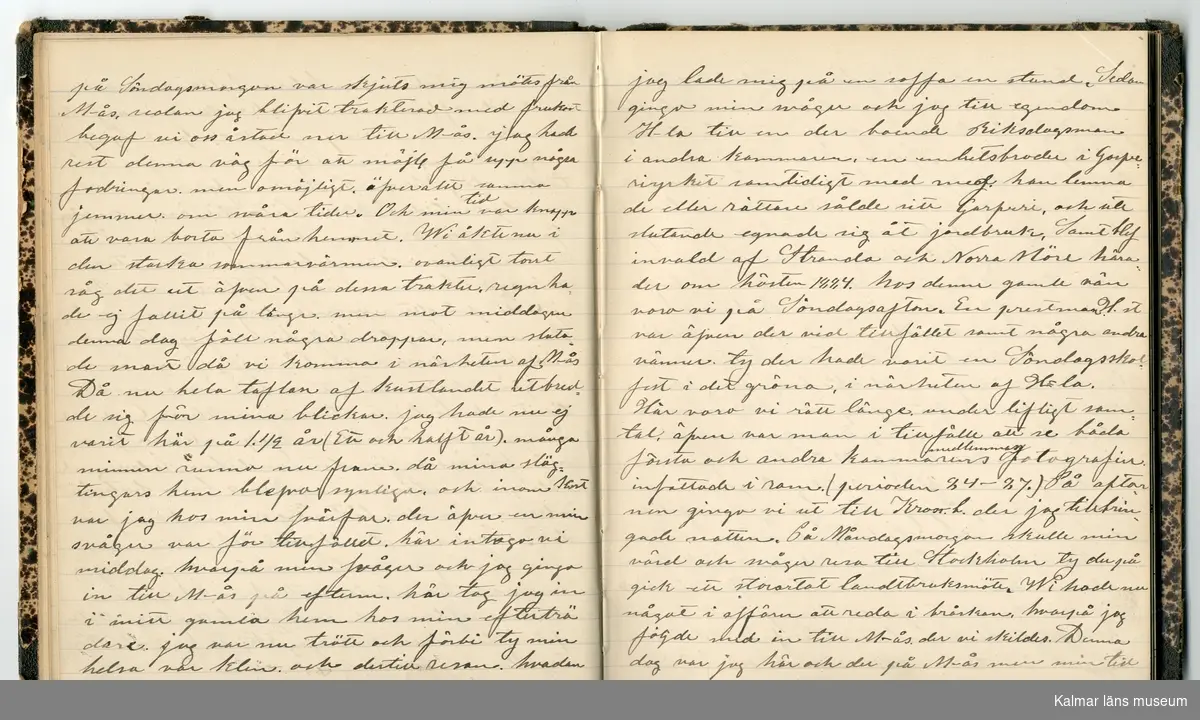 på Söndagsmorgon var skjuts mig mötes från
M-ås, sedan jag blifvit trakterad med frukost
begaf vi oss åstad ner till M-ås. jag hade
rest denna väg för att möjlg få upp några
fodringar. men omöjligt. äfverallt samma
jemmer om svåra tider. Och min tid var knapp
att vara borta från hemmet. Wi åkte nu i
den starka sommarvärmen. ovanligt tort
såg det ut äfven på dessa trakter, regn ha-
de ej fallit på länge. men mot middagen
denna dag föll några droppar, men sluta-
de snart då vi komma i närheten af M-ås
Då nu hela taflan af kustlandet utbred-
de sig för mina blickar. jag hade nu ej
varit här på 1.1/2 år (Ett och halft år). många
minnen runno nu fram. då mina släg-
tingars hem blefvo synliga. och inom kort
var jag hos min svärfar. der äfven en min
svåger var för tillfället. här intogo vi
middag. hvarpå min svåger och jag gingo
in till M-ås på efterm. här tog jag in
i mitt gamla hem hos min efterträ
dare. jag var nu trött och förbi ty min
helsa var klen. och dertill resan. hvadan
jag lade mig på en soffa en stund. Sedan
gingo min svåger och jag till egendom
H-la till en der boende Riksdagsman
i andra kammaren, en embetsbroder i Garfve-
riyrket samtidigt med mig. han lemna
de eller rättare sålde sitt Garfveri, och ute
slutande egnade sig åt jordbruk, Samt blef
invald af Stranda och Norra Möre hära-
der om hösten 1884. hos denne gamle vän
voro vi på Söndagsafton. En prestman H. st
var äfven der vid tillfället samt några andra
vänner. ty der hade varit en Söndagsskol-
fest i det gröna, i närheten af H-la.
Här voro vi rätt länge. under lifligt sam-
tal, äfven var man i tillfälle att se båda
första och andra kammarens medlemmars fotografier
infattade i ram. (perioden 84-87.) På afton
nen gingo vi ut till Kross. b. der jag tillbrin-
gade natten. På Måndagsmorgon skulle min
värd och svåger resa till Stockholm ty der på
gick ett storartat landtbruksmöte. Wi hade nu
något i affärn att reda i bråskan. hvarpå jag
följde med in till M-ås, der vi skildes. Denna
dag var jag här och der på M-ås men min tid
Kalmar läns museum